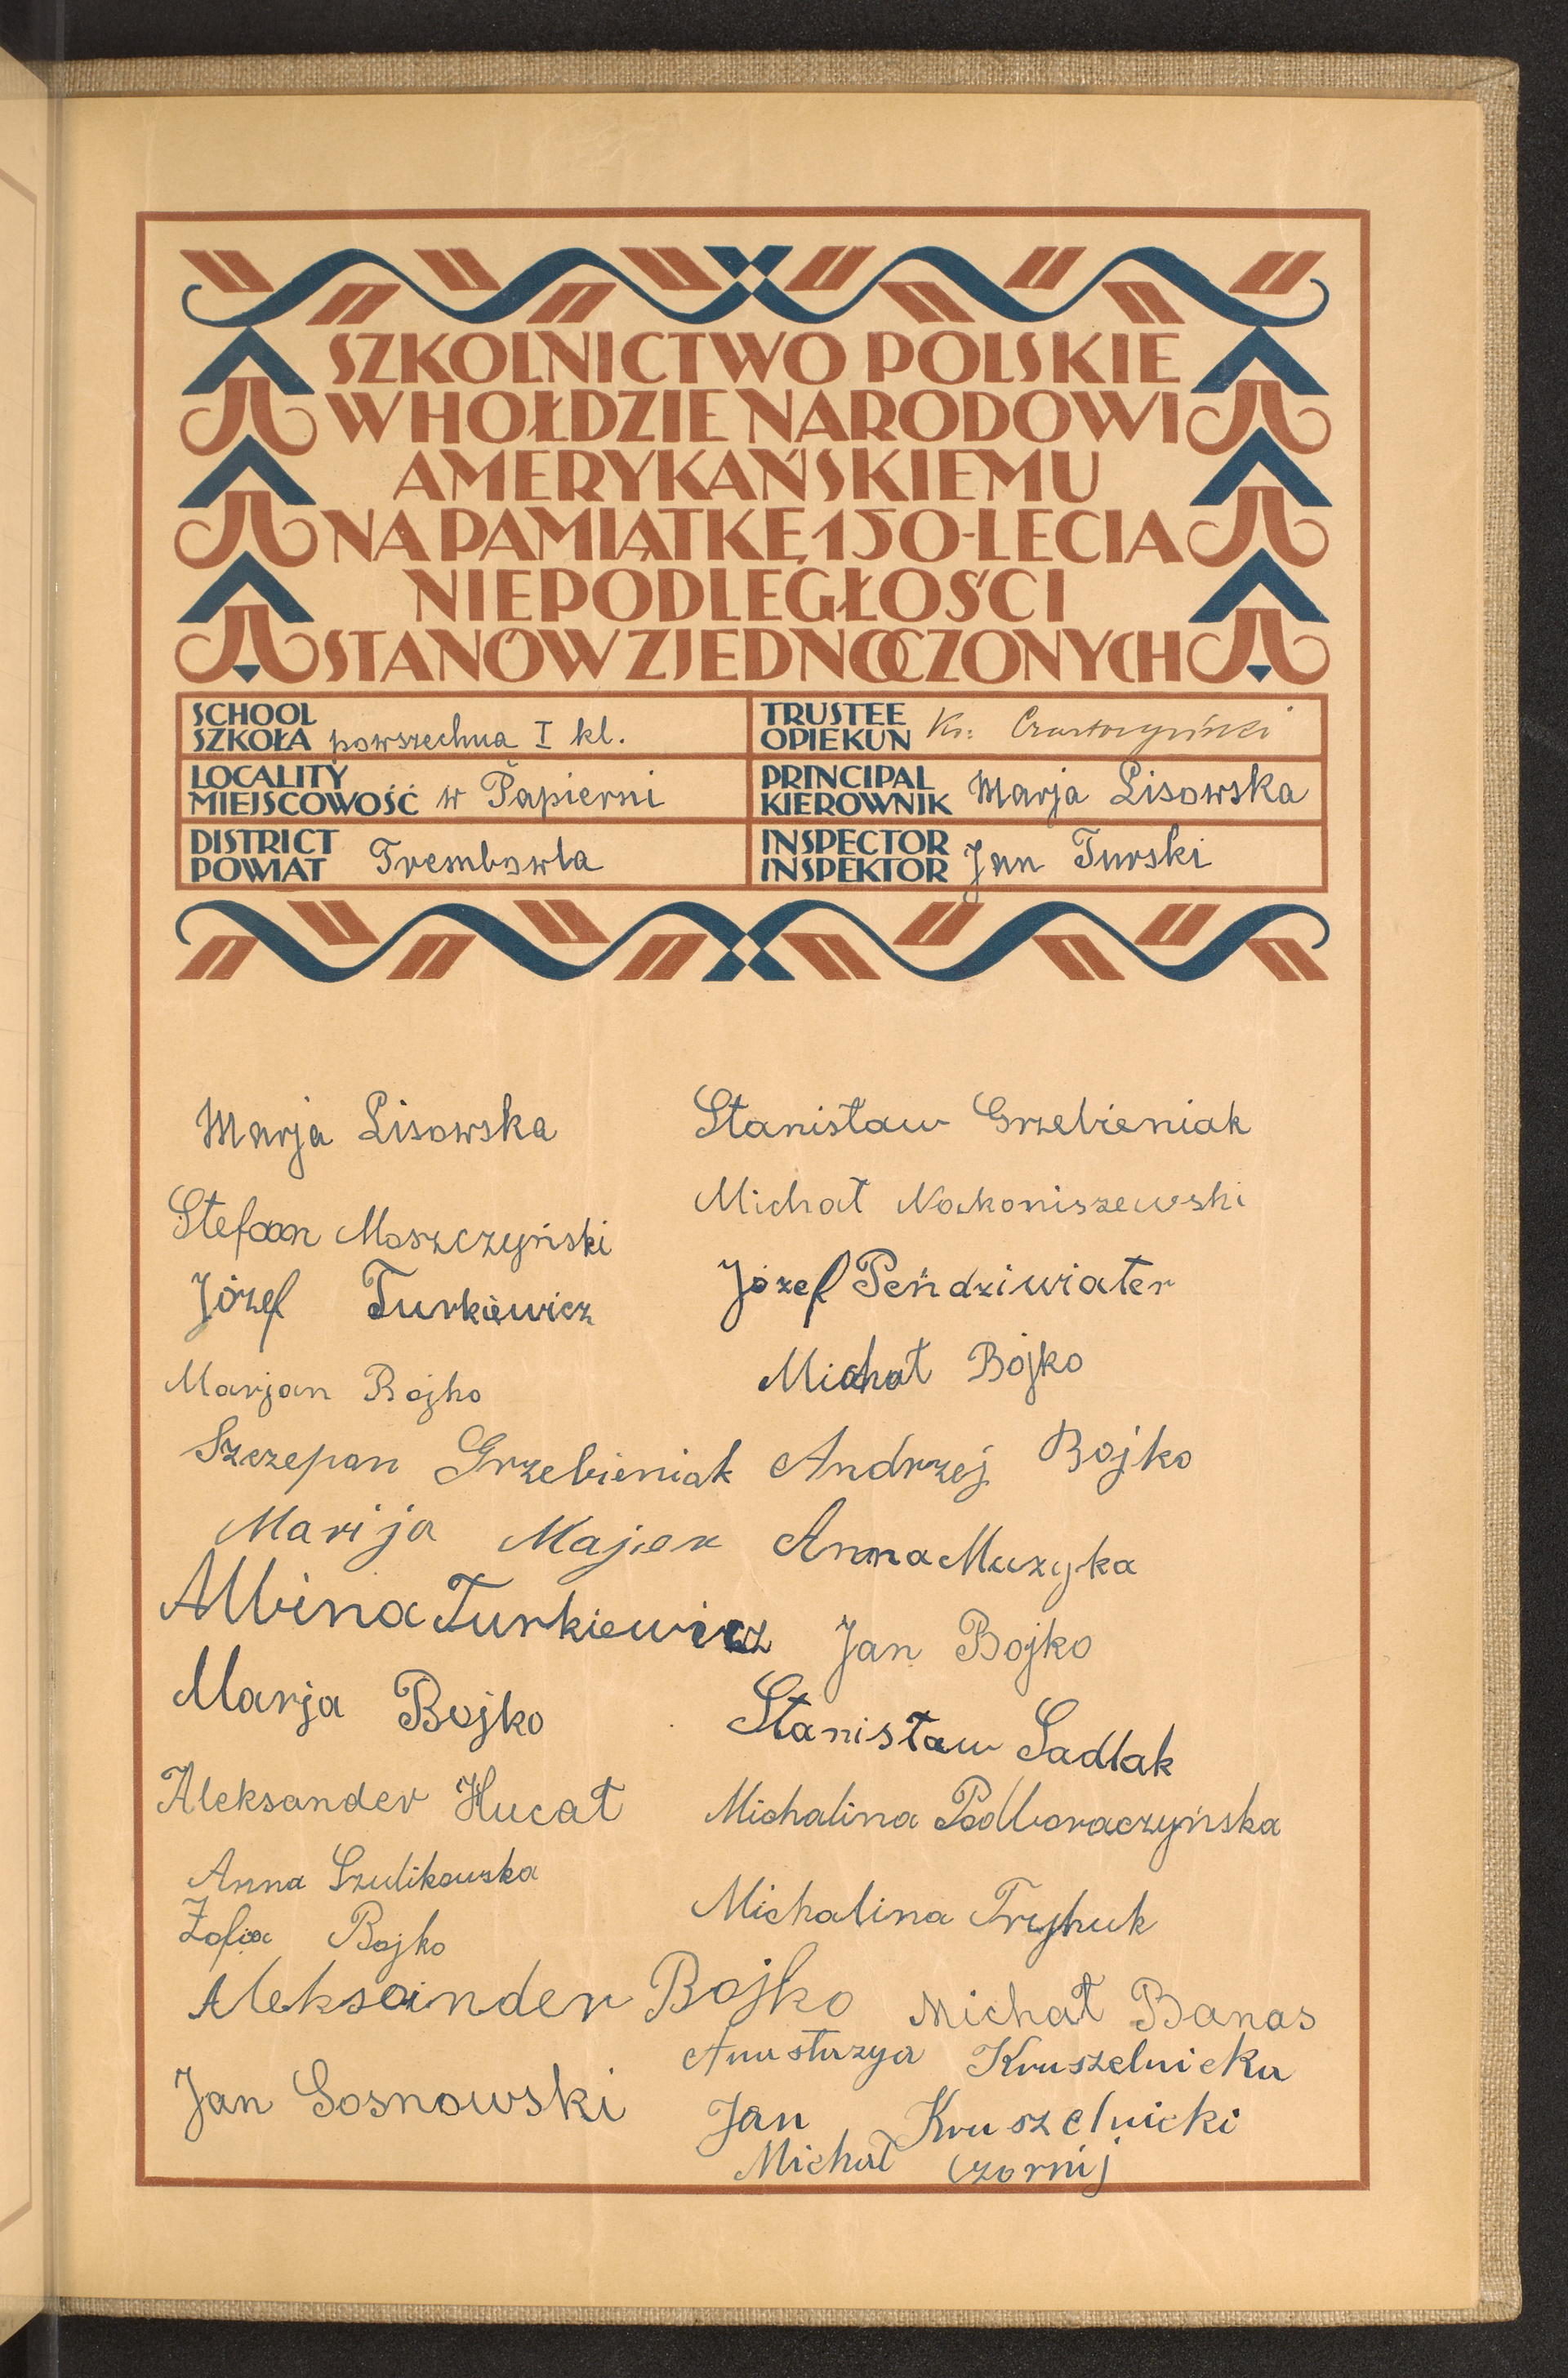 SZKOLNICTWO POLSKIE
W HOŁDZIE NARODOWI
AMERYKAŃSKIEMU
NA PAMIĄTKĘ 150-LECIA
NIEPODLEGŁOŚCI
STANÓW ZJEDNOCZONYCH
SCHOOL
SZKOŁA powszechna I kl.
TRUSTEE
OPIEKUN Ks.
LOCALITY
MIEJSCOWOŚĆ w Papierni
PRINCIPAL
KIEROWNIK Marja Lisowska
DISTRICT
POWIAT Trembowla
INSPECTOR
INSPEKTOR Jan Turski
Marja Lisowska
Stefan Moszczyński
Józef Turkiewicz
Marjan Bojko
Szczepan Grzebieniak
Marija Majer
Albina Turkiewicz
Marja Bojko
Aleksander Hucał
Anna Szulikowska
Zofia Bojko
Aleksander Bojko
Jan Sosnowski
Stanisław Grzebieniak
Michał Nakoniszewski
Józef Pendziwiater
Michał Bojko
Andrzej Bojko
Anna Muzyka
Jan Bojko
Stanisław Sadlak
Michalina Podboraczyńska
Michalina Tryhuk
Michał Banas
Anastazya Kruszelnicka
Jan Kruszelnicki
Michał Czornij